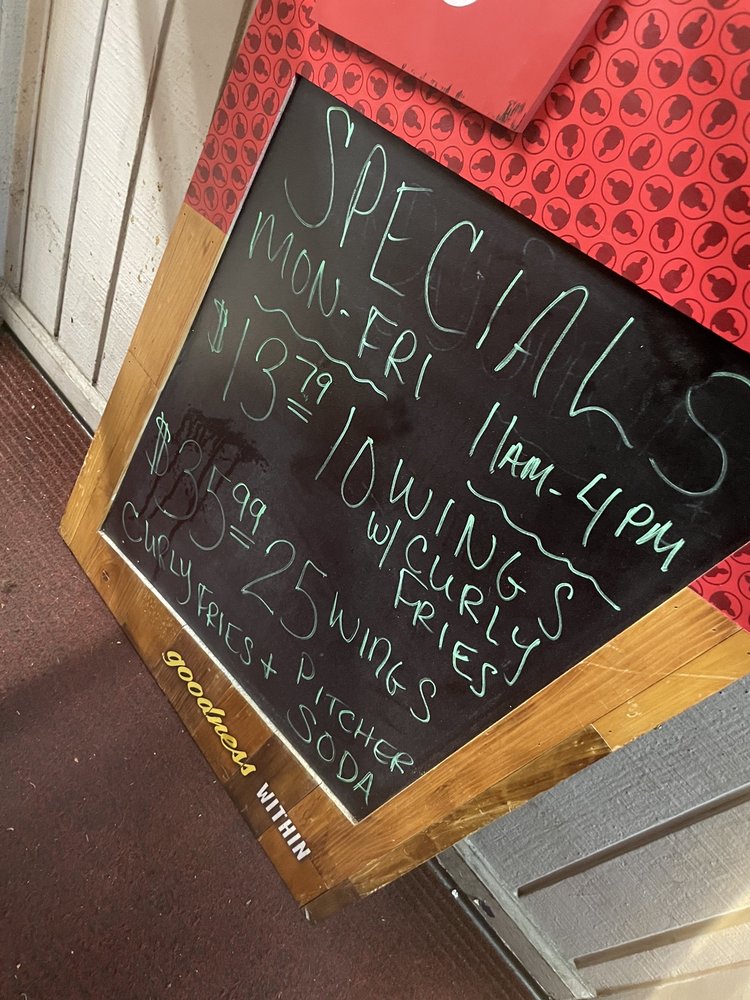 SPECIALS
MON-FRI 11AM-4PM
$13.79 10 WINGS
W/ CURLY
FRIES
$35.99 25 WINGS
CURLY FRIES + PITCHER
SODA
goodness WITHIN